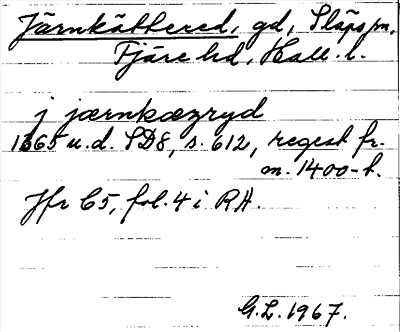 Järnkättered, gd, Släps sn,
Fjäre hd, Hall. l.
j jærnkæzryd
1365 u.d. SD8, s. 612, regest fr.
m. 1400-t.
Jfr C5, fol. 4 i RA.
G.L. 1967.